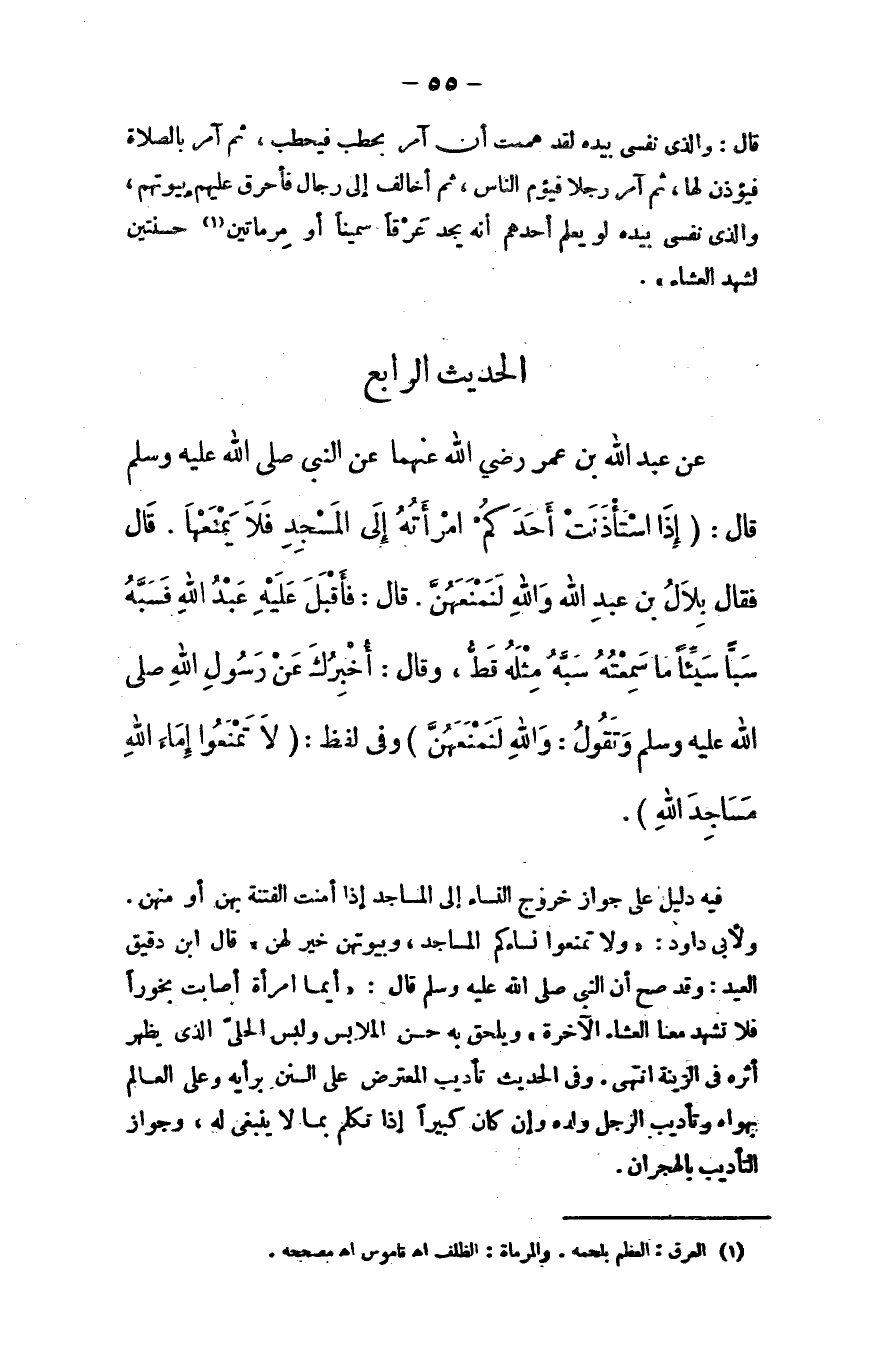 — ٥٥ —
قال : والذى نفسى بيده لقد هممت أن آمر بحطب فيحطب ، ثم آمر بالصلاة
فيؤذن لها ، ثم آمر رجلا فيؤم الناس ، ثم أخالف إلى رجال فأحرق عليهم بيوتهم ،
والذى نفسى بيده لو يعلم أحدهم أنه يجد عَرْقاً سميناً أو مِرماتين(١) حسنتين
لشهد العشاء » .
الحديث الرابع
عن عبد الله بن عمر رضي الله عنهما عن النبي صلى الله عليه وسلم
قال : ( إِذَا اسْتَأْذَنَتْ أَحَدَكُمْ امْرَأَتُهُ إِلَى المَسْجِدِ فَلاَ يَمْنَعْهَا . قَال
فقال بِلاَلُ بن عبدِ الله وَاللهِ لَنَمْنَعَهُنَّ . قال : فأَقْبَلَ عَلَيْهِ عَبْدُ اللهِ فَسَبَّهُ
سَبًّا سَيِّئاً مَا سَمِعْتُهُ سَبَّهُ مِثْلَهُ قَطُّ ، وقال : أُخْبِرُكَ عَنْ رَسُولِ اللهِ صلى
الله عليه وسلم وَتَقُولُ : وَاللهِ لَنَمْنَعَهُنَّ ) وفى لفظ : ( لاَ تَمْنَعُوا إِمَاءَ اللهِ
مَسَاجِدَ اللهِ ) .
فيه دليل على جواز خروج النساء إلى المساجد إذا أمنت الفتنة بهن أو منهن .
ولأبى داود : « ولا تمنعوا نساءكم المساجد ، وبيوتهن خير لهن » قال ابن دقيق
العيد : وقد صح أن النبي صلى الله عليه وسلم قال : « أيما امرأة أصابت بخوراً
فلا تشهد معنا العشاء الآخرة » ويلحق به حسن الملابس ولبس الحلىّ الذى يظهر
أثره فى الزينة انتهى . وفى الحديث تأديب المعترض على السنن برأيه وعلى العالم
بهواه وتأديب الرجل ولده وإن كان كبيراً إذا تكلم بما لا ينبغى له ، وجواز
التأديب بالهجران .
(١) العرق : العظم بلحمه . والمرماة : الظلف اه قاموس اه مصححه .